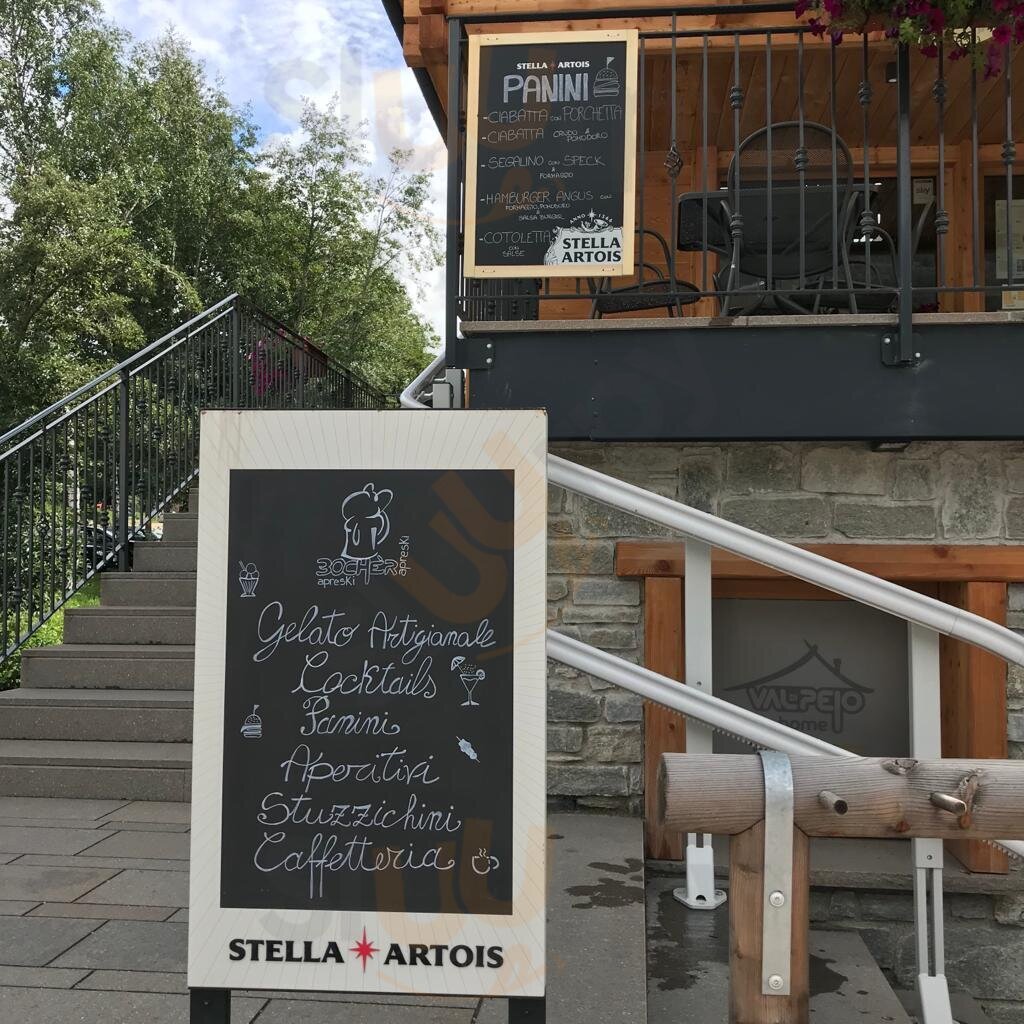 STELLA ARTOIS
PANINI
-CIABATTA CON PORCHETTA
-CIABATTA CRUDO &
POMODORO
-SEGALINO CON SPECK
&
FORMAGGIO
-HAMBURGER ANGUS CON
FORMAGGIO, POMODORO
&
SALSA BURGER
-COTOLETTA
CON
SALSE
ANNO 1366
STELLA
ARTOIS
sky
BOCHÈR
apreski
apreski
Gelato Artigianale
Cocktails
Panini
Aperitivi
Stuzzichini
Caffetteria
STELLA ARTOIS
VAL-PEJO
home